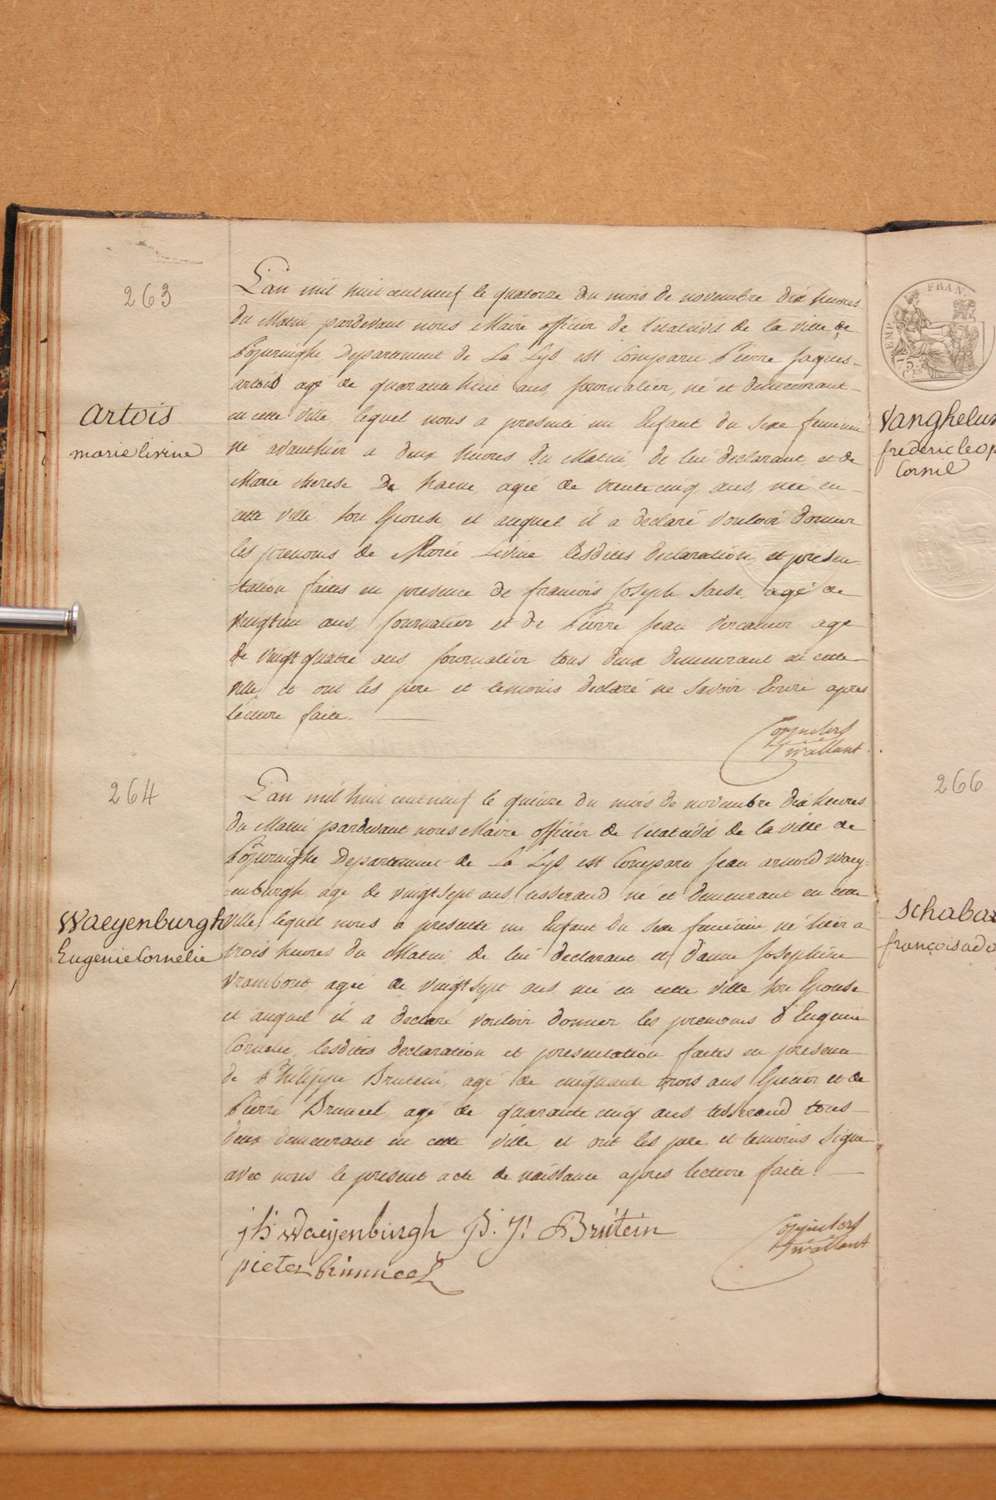 263
artois
marie livine
L'an mil huit cent neuf le quatorze du mois de novembre dix heures
du Matin pardevant nous Maire officier de l'etatcivil de la ville de
Poperinghe Departement de La Lys est Comparu Pierre Jaques
artois agé de quarante huit ans, Journalier, né et demeurant
en cette ville, lequel nous a presenté un Enfant du sexe feminin
né avanthier a deux heures du Matin de lui declarant et de
Marie therese De haene agée de trente cinq ans, née en
cette ville son Epouse et auquel il a declaré vouloir donner
les prenoms de Marie Livine lesdites declaration et présen
tation faites en presence de francois Joseph agé de
vingtun ans, Journalier et de Pierre Jean agé
de vingt quatre ans Journalier tous deux demeurant en cette
ville et ont les pere et temoins declaré ne savoir Ecrire apres
lecture faite.
264
Waeyenburgh
Eugenie Cornélie
L'an mil huit cent neuf le quinze du mois de novembre dix heures
du Matin pardevant nous Maire officier de l'etatcivil de la ville de
Poperinghe Departement de La Lys est Comparu Jean arnold Waey
enburgh agé de vingt sept ans, tisserand né et demeurant en cette
ville, lequel nous a presenté un Enfant du sexe feminin né hier a
trois heures du Matin de lui declarant et d'anne Josephine
Vrambout agée de vingt sept ans née en cette ville son Epouse
et auquel il a declaré vouloir donner les prenoms d'Eugenie
Cornelie, lesdites declaration et presentation faites en presence
de Philippe Brutein, agé de cinquante trois ans Epicier et de
Pierre Bruneel agé de quarante cinq ans tisserand tous
deux demeurant en cette ville et ont les pere et temoins signé
avec nous le present acte de naissance apres lecture faite.
Waeyenburgh P. J. Brutein
pieter brunneel
EMP FRAN
Vanghelu
frederic leop
Cornil
266
Schaba
françois ado